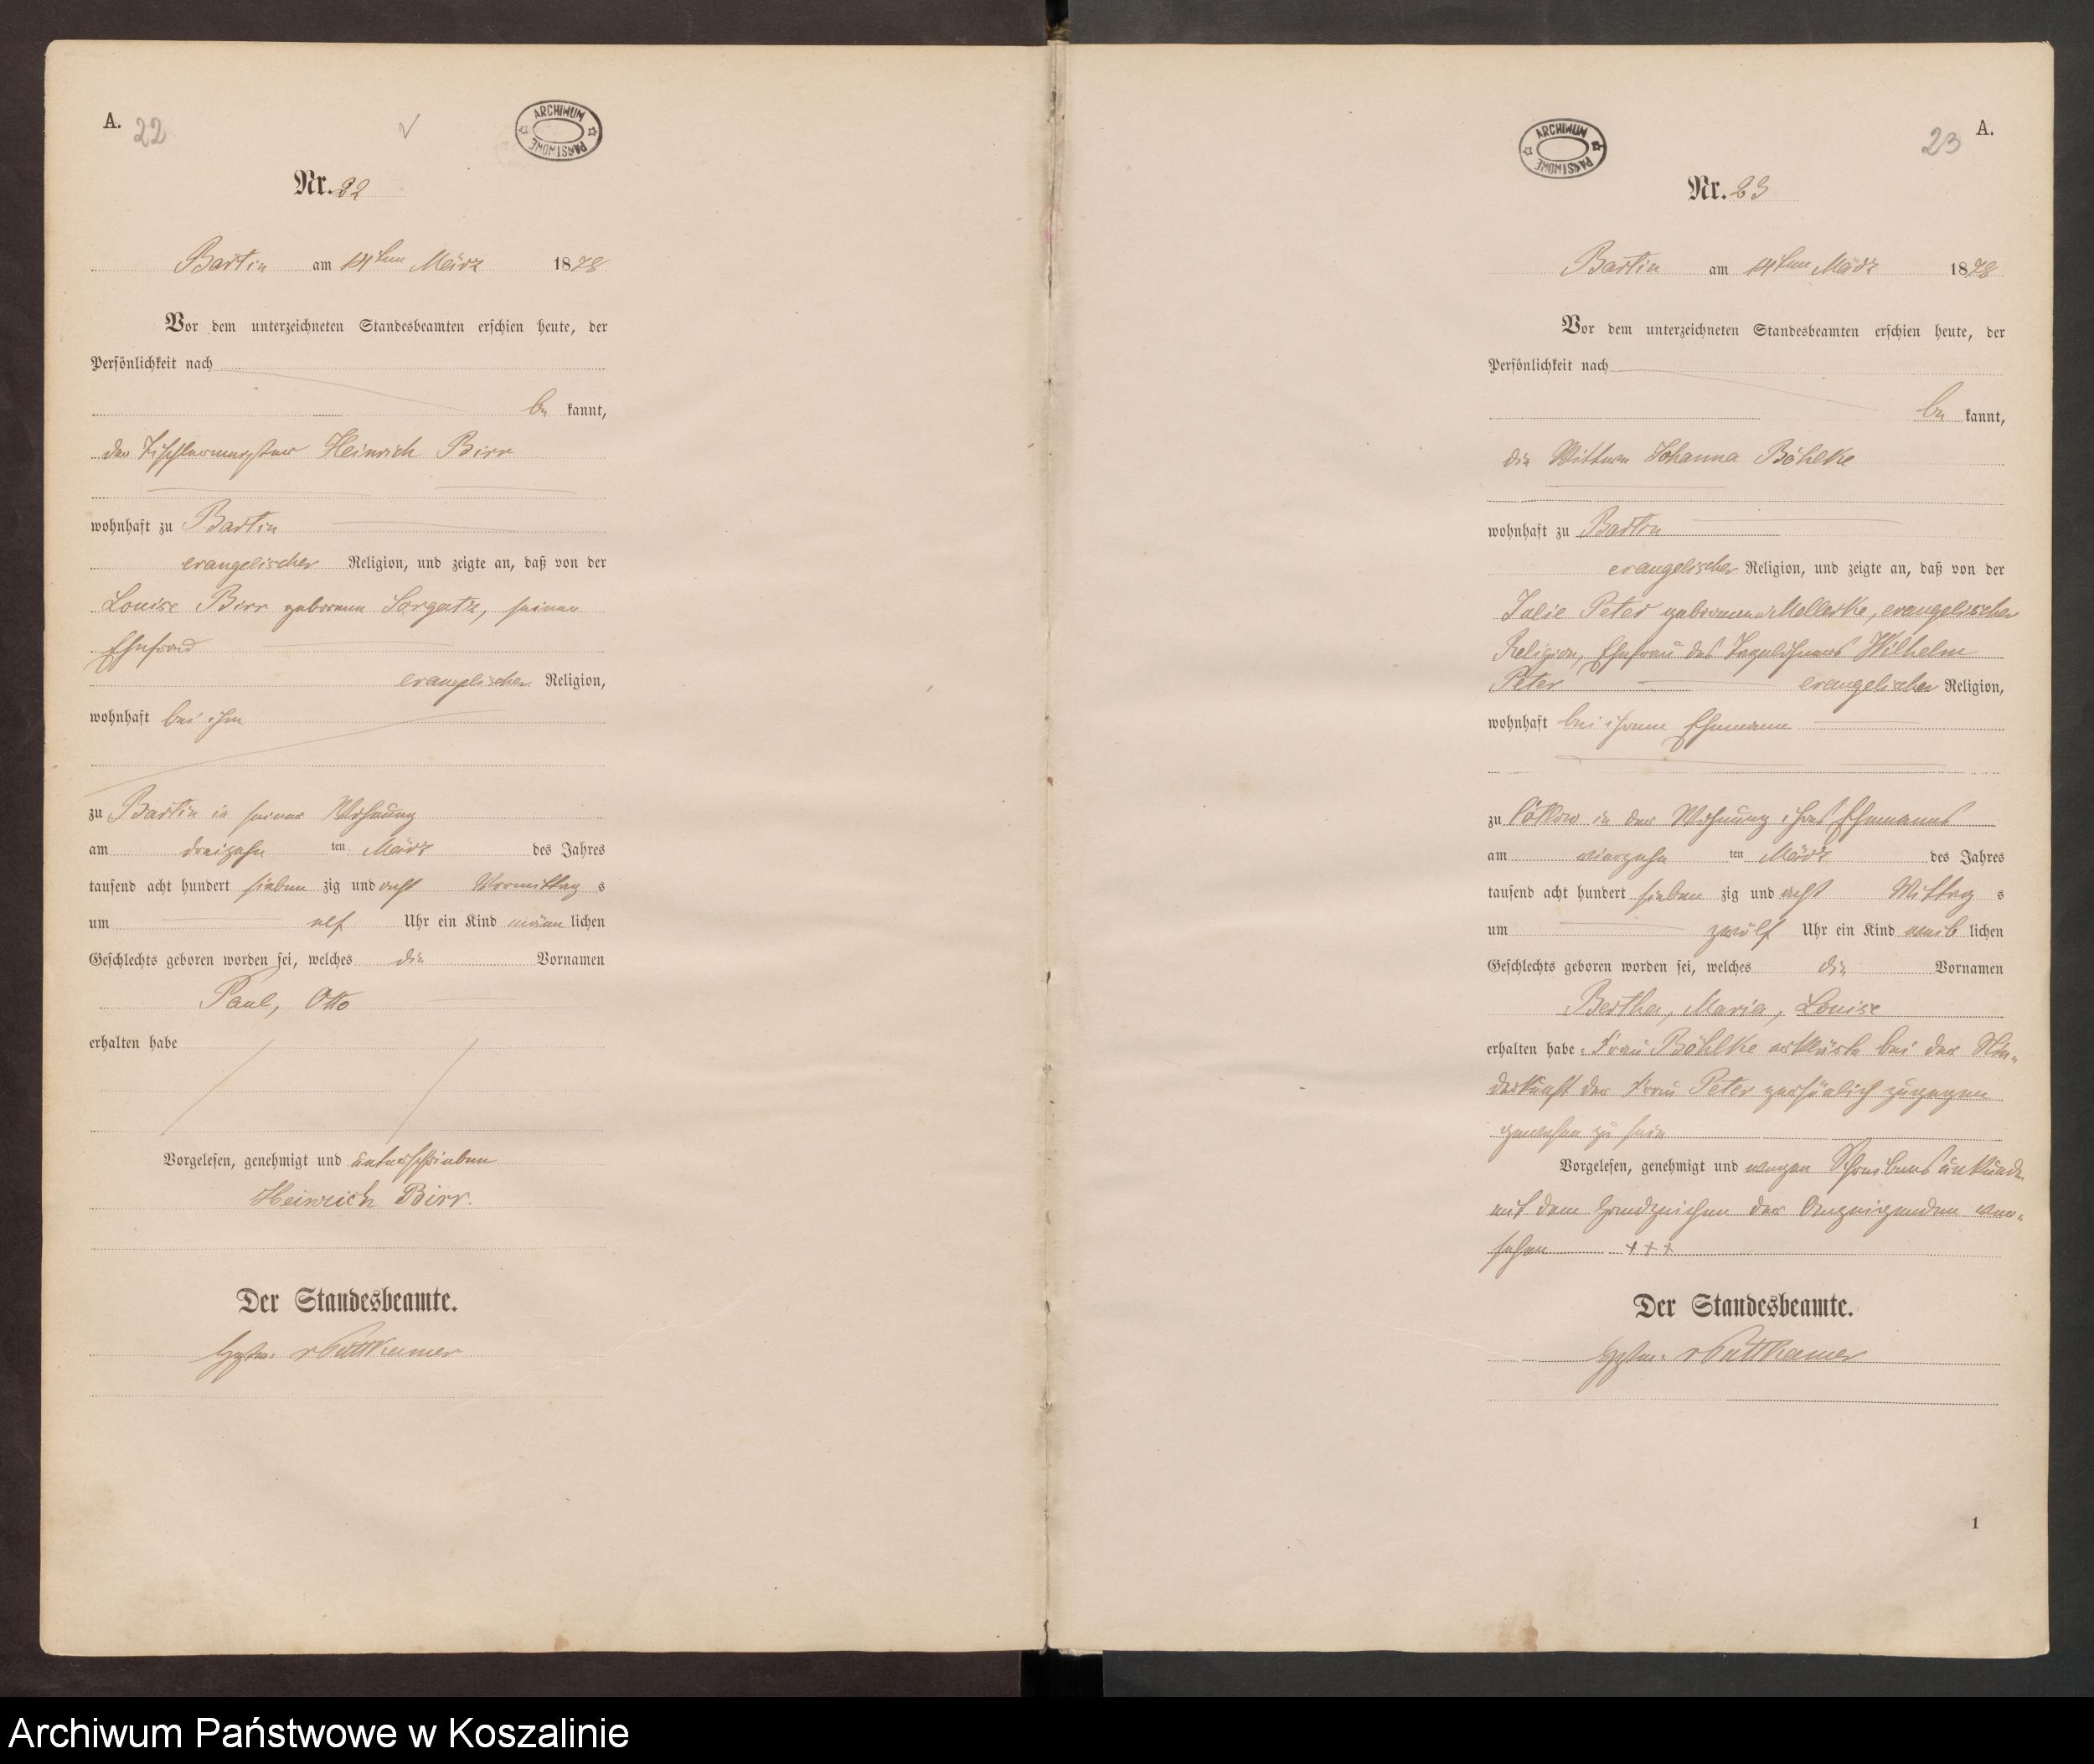 A. 22
ARCHIWUM PAŃSTWOWE
Nr. 22
Bartin am 14ten März 1878
Vor dem unterzeichneten Standesbeamten erschien heute, der
Persönlichkeit nach
be kannt,
der Tischlermeister Heinrich Birr
wohnhaft zu Bartin
evangelischer Religion, und zeigte an, daß von der
Louise Birr geborenen Sorgatz, seiner
Ehefrau
evangelischer Religion,
wohnhaft bei ihm
zu Bartin in seiner Wohnung
am dreizehn ten März des Jahres
tausend acht hundert sieben zig und acht Vormittag s
um elf Uhr ein Kind männ lichen
Geschlechts geboren worden sei, welches die Vornamen
Paul, Otto
erhalten habe
Vorgelesen, genehmigt und unterschrieben
Heinrich Birr.
Der Standesbeamte.
v Puttkamer
23 A.
ARCHIWUM PAŃSTWOWE
Nr. 23
Bartin am 14ten März 1878
Vor dem unterzeichneten Standesbeamten erschien heute, der
Persönlichkeit nach
be kannt,
die Wittwe Johanna Böhlke
wohnhaft zu Bartin
evangelischer Religion, und zeigte an, daß von der
Julie Peter geborenen Mellerke, evangelischer
Religion, Ehefrau des Tagelöhners Wilhelm
Peter evangelischer Religion,
wohnhaft bei ihrem Ehemann
zu in der Wohnung ihres Ehemanns
am vierzehn ten März des Jahres
tausend acht hundert sieben zig und acht Mittag s
um zwölf Uhr ein Kind weib lichen
Geschlechts geboren worden sei, welches die Vornamen
Bertha, Maria, Louise
erhalten habe. Frau Böhlke erklärte bei der Nie-
derkunft der Frau Peter persönlich zugegen
gewesen zu sein
Vorgelesen, genehmigt und wegen Schreibensunkunde
mit dem Handzeichen der Anzeigenden ver-
sehen +++
Der Standesbeamte.
v Puttkamer
1
Archiwum Państwowe w Koszalinie